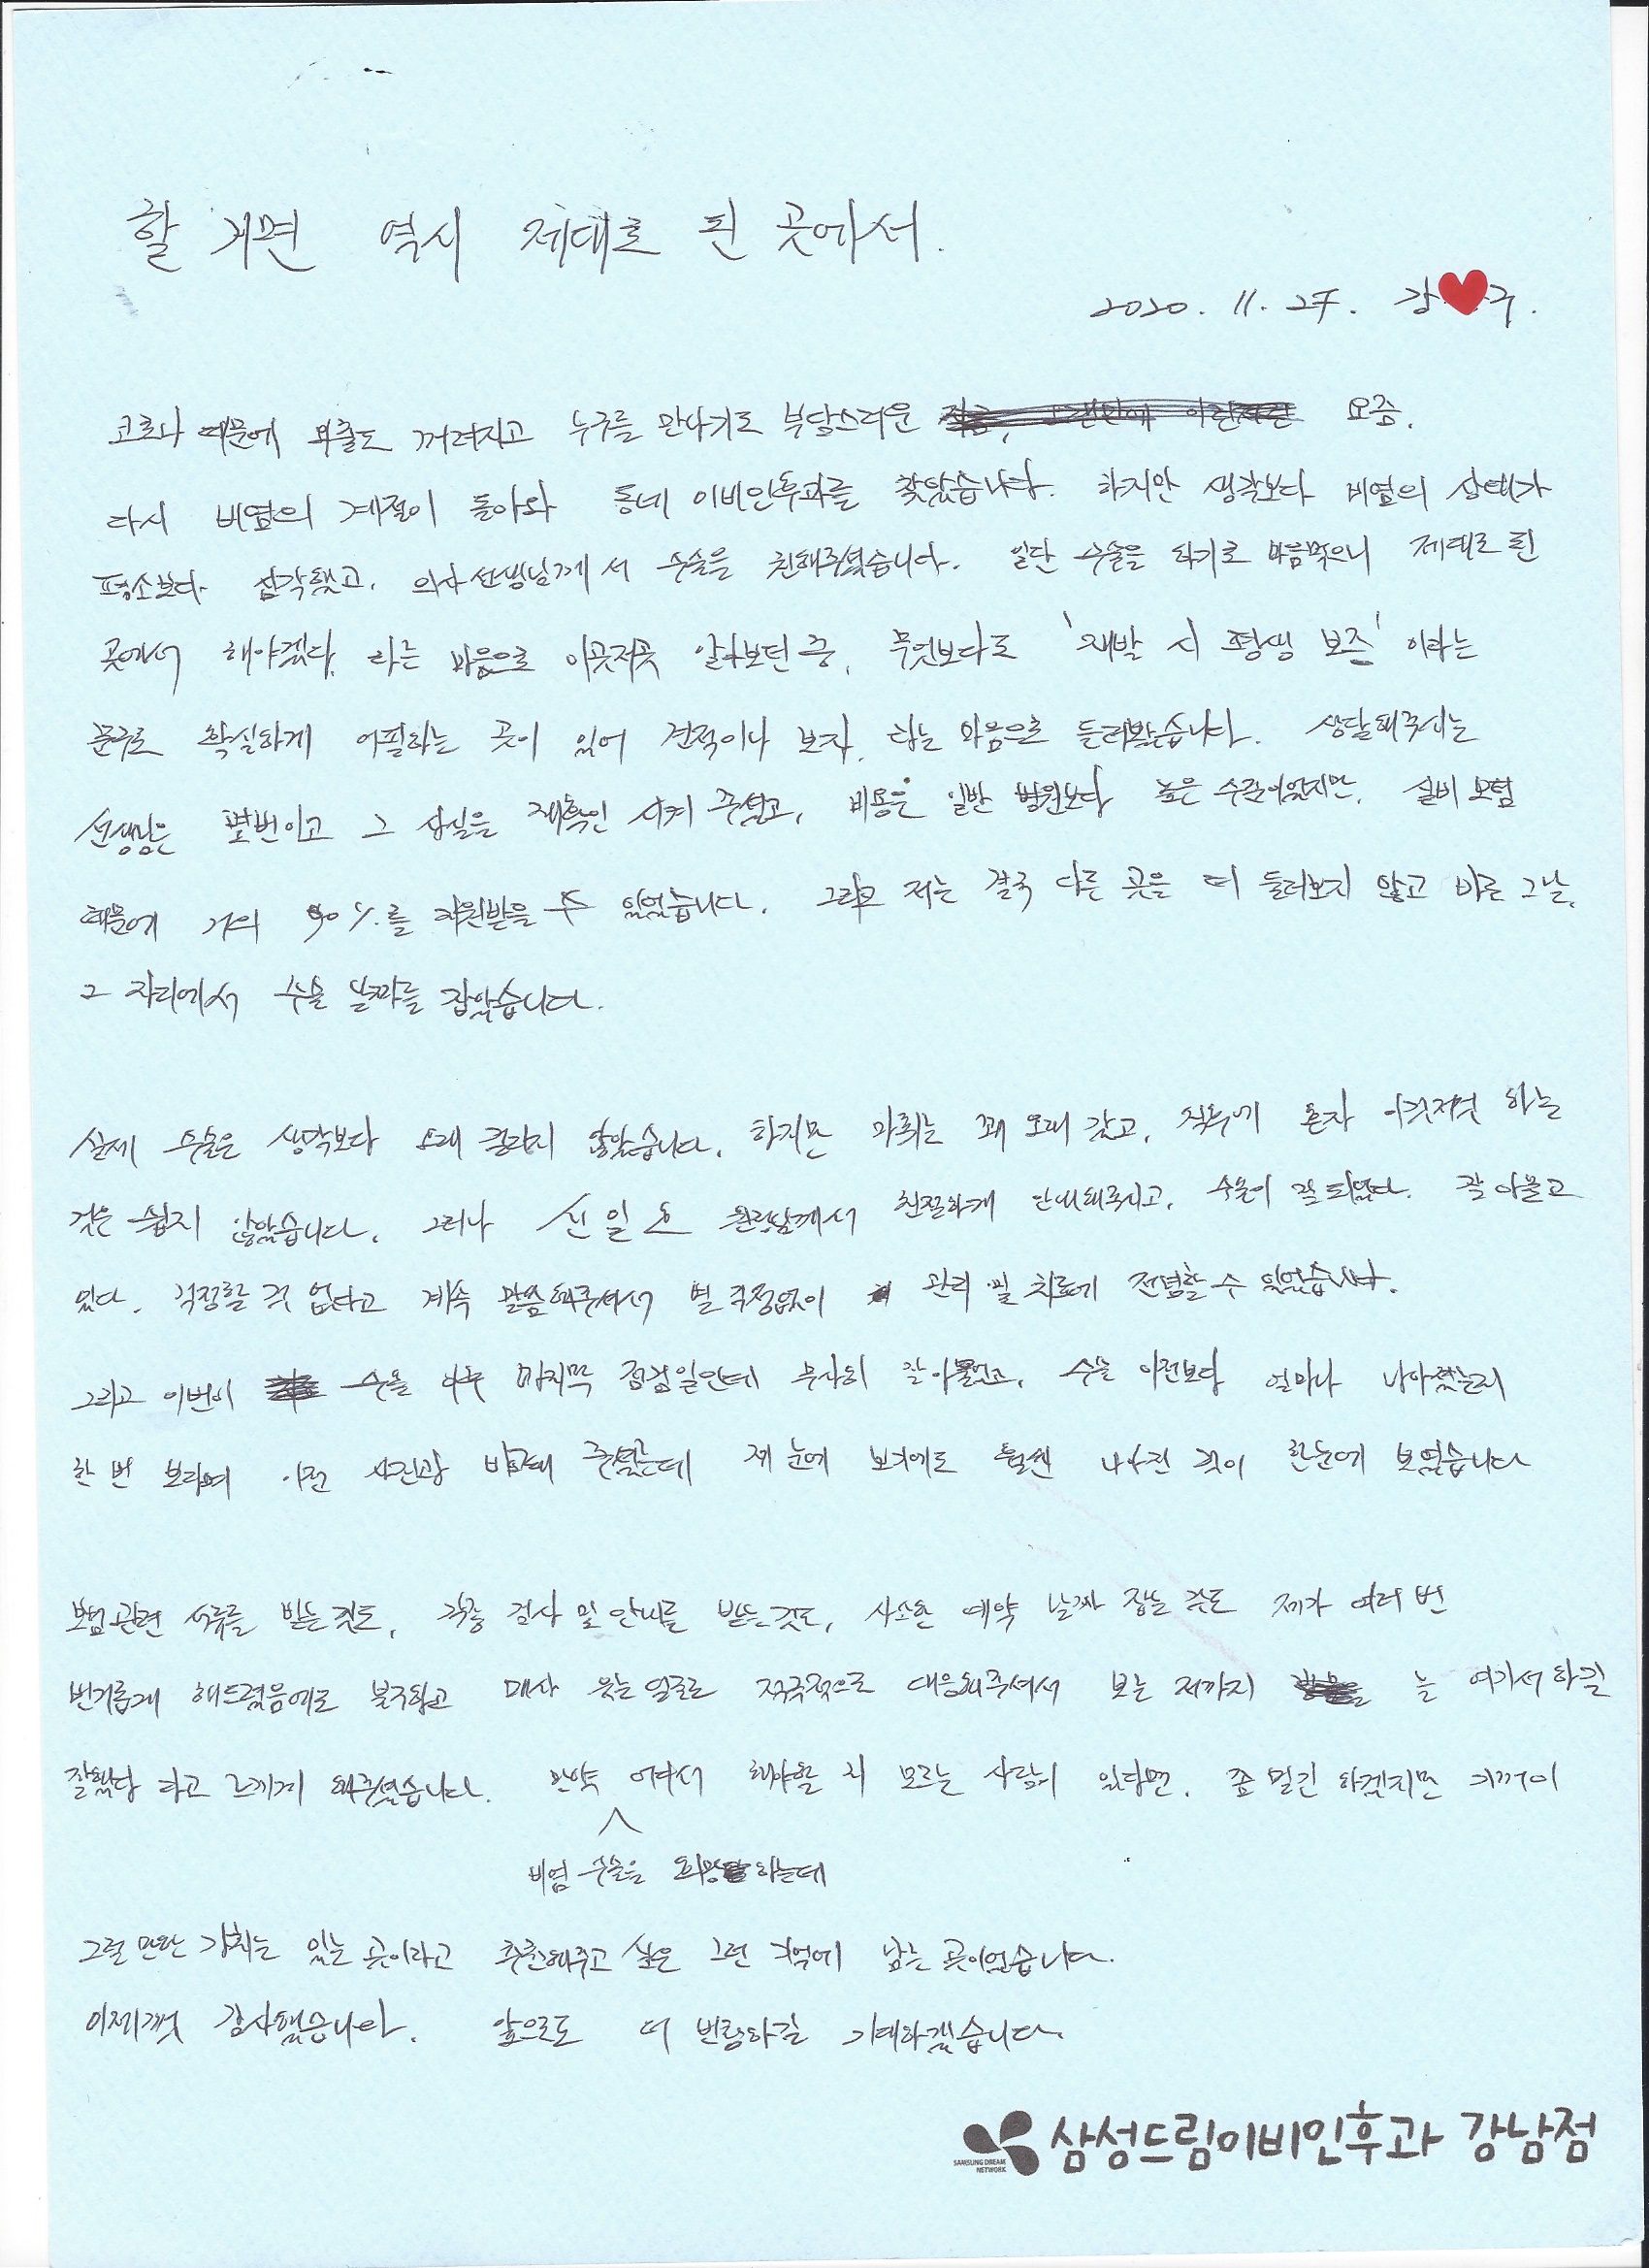 할 거면 역시 제대로 된 곳에서.
2020. 11. 27. 강 구.
코로나 때문에 외출도 꺼려지고 누구를 만나기도 부담스러운 요즘.
다시 비염의 계절이 돌아와 동네 이비인후과를 찾았습니다. 하지만 생각보다 비염의 상태가
평소보다 심각했고, 의사선생님께서 수술을 권해주셨습니다. 일단 수술을 하기로 마음먹으니 제대로 된
곳에서 해야겠다, 라는 마음으로 이곳저곳 알아보던 중, 무엇보다도 '재발 시 평생 보증' 이라는
문구로 확실하게 어필하는 곳이 있어 견적이나 보자, 라는 마음으로 들러봤습니다. 상담해주시는
선생님은 몇번이고 그 사실을 재확인 시켜 주셨고, 비용은 일반 병원보다 높은 수준이었지만, 실비 보험
때문에 거의 90%를 지원받을 수 있었습니다. 그리고 저는 결국 다른 곳을 더 둘러보지 않고 바로 그날,
그 자리에서 수술 날짜를 잡았습니다.
실제 수술은 생각보다 오래 걸리지 않았습니다. 하지만 마취는 꽤 오래 갔고, 직후에 혼자 이것저것 하는
것은 쉽지 않았습니다. 그러나 신일호 원장님께서 친절하게 안내해주시고, 수술이 잘 되었다. 잘 아물고
있다. 걱정할 것 없다고 계속 말씀해주셔서 별 걱정없이 관리 및 치료에 전념할 수 있었습니다.
그리고 이번이 수술 이후 마지막 점검일인데 무사히 잘 아물었고, 수술 이전보다 얼마나 나아졌는지
한 번 보라며 이전 사진과 비교해 주셨는데 제 눈에 보기에도 훨씬 나아진 것이 한눈에 보였습니다
보험관련 서류를 받는 것도, 각종 검사 및 안내를 받는 것도, 사소한 예약 날짜 잡는 것도 제가 여러 번
번거롭게 해드렸음에도 불구하고 매사 웃는 얼굴로 적극적으로 대응해주셔서 보는 저까지 늘 여기서 하길
잘했다 라고 느끼게 해주셨습니다. 만약 어디서 해야할 지 모르는 사람이 있다면, 좀 멀긴 하겠지만 기꺼이
비염 수술을 희망하는데
그럴 만한 가치는 있는 곳이라고 추천해주고 싶은 그런 기억에 남는 곳이었습니다.
이제껏 감사했습니다. 앞으로도 더 번창하길 기대하겠습니다.
삼성드림이비인후과 강남점
SAMSUNG DREAM
NETWORK